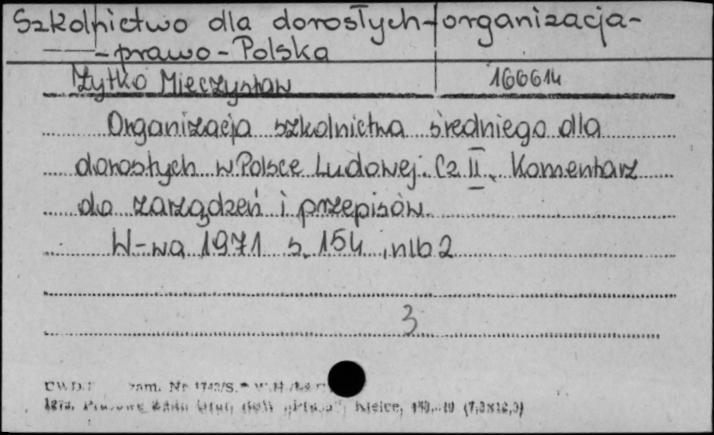 Szkolnictwo dla dorosłych-organizacja-
-prawo-Polska
Żytko Mieczysław 166614
Organizacja szkolnictwa średniego dla
dorosłych w Polsce Ludowej. Cz II. Komentarz
do zarządzeń i przepisów.
W-wa 1971 s. 154, nlb 2
3
zam. Nr
Kielce,